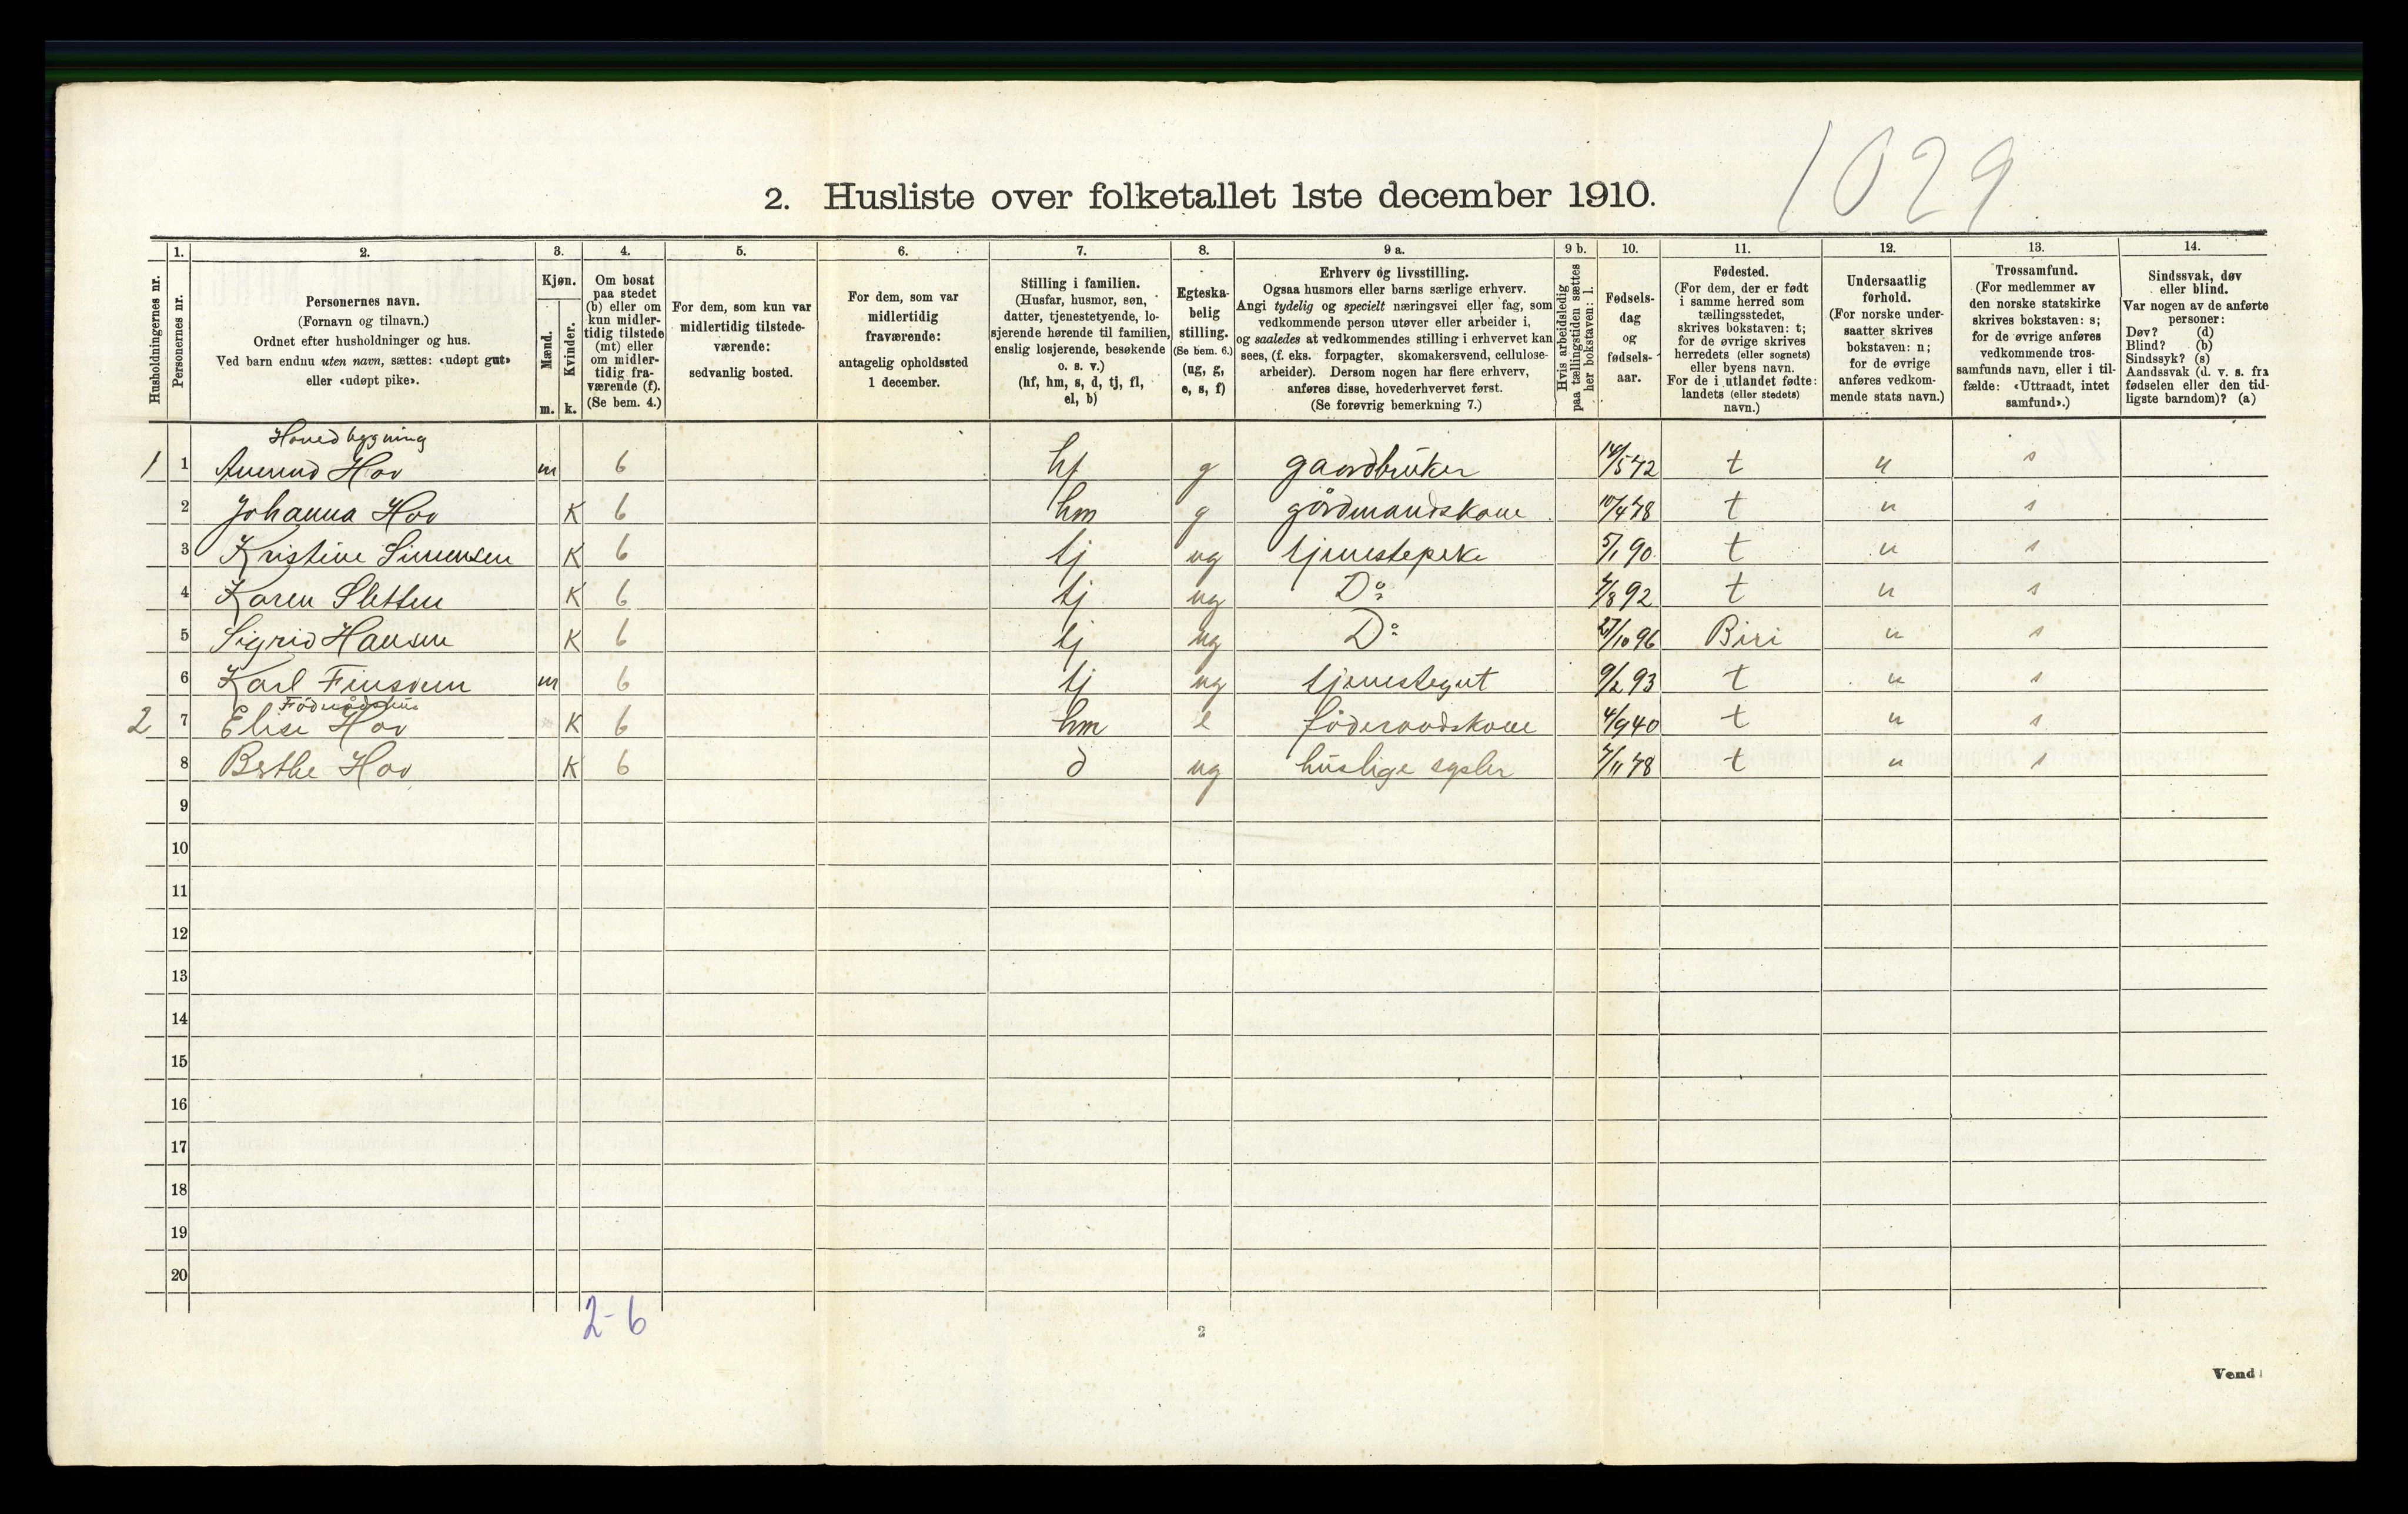 1029
2. Husliste over folketallet 1ste december 1910.
Husholdningernes nr.
1.
Personernes nr.
2.
Personernes navn.
(Fornavn og tilnavn.)
Ordnet efter husholdninger og hus.
Ved barn endnu uten navn, sættes: «udøpt gut»
eller «udøpt pike».
3.
Kjøn.
Mænd.
m.
Kvinder.
k.
4.
Om bosat
paa stedet
(b) eller om
kun midler-
tidig tilstede
(mt) eller
om midler-
tidig fra-
værende (f).
(Se bem. 4.)
5.
For dem, som kun var
midlertidig tilstede-
værende:
sedvanlig bosted.
6.
For dem, som var
midlertidig
fraværende:
antagelig opholdssted
1 december.
7.
Stilling i familien.
(Husfar, husmor, søn,
datter, tjenestetyende, lo-
sjerende hørende til familien,
enslig losjerende, besøkende
o. s. v.)
(hf, hm, s, d, tj, fl,
el, b)
8.
Egteska-
belig
stilling.
(Se bem. 6.)
(ug, g,
e, s, f)
9 a.
Erhverv og livsstilling.
Ogsaa husmors eller barns særlige erhverv.
Angi tydelig og specielt næringsvei eller fag, som
vedkommende person utøver eller arbeider i,
og saaledes at vedkommendes stilling i erhvervet kan
sees, (f. eks. forpagter, skomakersvend, cellulose-
arbeider). Dersom nogen har flere erhverv,
anføres disse, hovederhvervet først.
(Se forøvrig bemerkning 7.)
9 b.
Hvis arbeidsledig
paa tællingstiden sættes
her bokstaven: l.
10.
Fødsels-
dag
og
fødsels-
aar.
11.
Fødested.
(For dem, der er født
i samme herred som
tællingsstedet,
skrives bokstaven: t;
for de øvrige skrives
herredets (eller sognets)
eller byens navn.
For de i utlandet fødte:
landets (eller stedets)
navn.)
12.
Undersaatlig
forhold.
(For norske under-
saatter skrives
bokstaven: n;
for de øvrige
anføres vedkom-
mende stats navn.)
13.
Trossamfund.
(For medlemmer av
den norske statskirke
skrives bokstaven: s;
for de øvrige anføres
vedkommende tros-
samfunds navn, eller i til-
fælde: «Uttraadt, intet
samfund».)
14.
Sindssvak, døv
eller blind.
Var nogen av de anførte
personer:
Døv? (d)
Blind? (b)
Sindssyk? (s)
Aandssvak (d. v. s. fra
fødselen eller den tid-
ligste barndom)? (a)
Hovedbygning
1 1 Amund Hov m b hf g gaardbruker 14/5 72 t n s
2 Johanna Hov K b hm g gårdmandskone 10/4 78 t n s
3 Kristine Simensen K b tj ug tjenestepike 5/1 90 t n s
4 Karen Sletten K b tj ug Do 4/8 92 t n s
5 Sigrid Hansen K b tj ug Do 27/10 96 Biri n s
6 Karl Finsveen m b tj ug tjenestegut 9/2 93 t n s
Föderådshus
2 7 Elise Hov K b hm e föderaadskone 4/9 40 t n s
8 Berthe Hov K b d ug huslige sysler 4/11 78 t n s
9
10
11
12
13
14
15
16
17
18
19
20
2-6
2
Vend